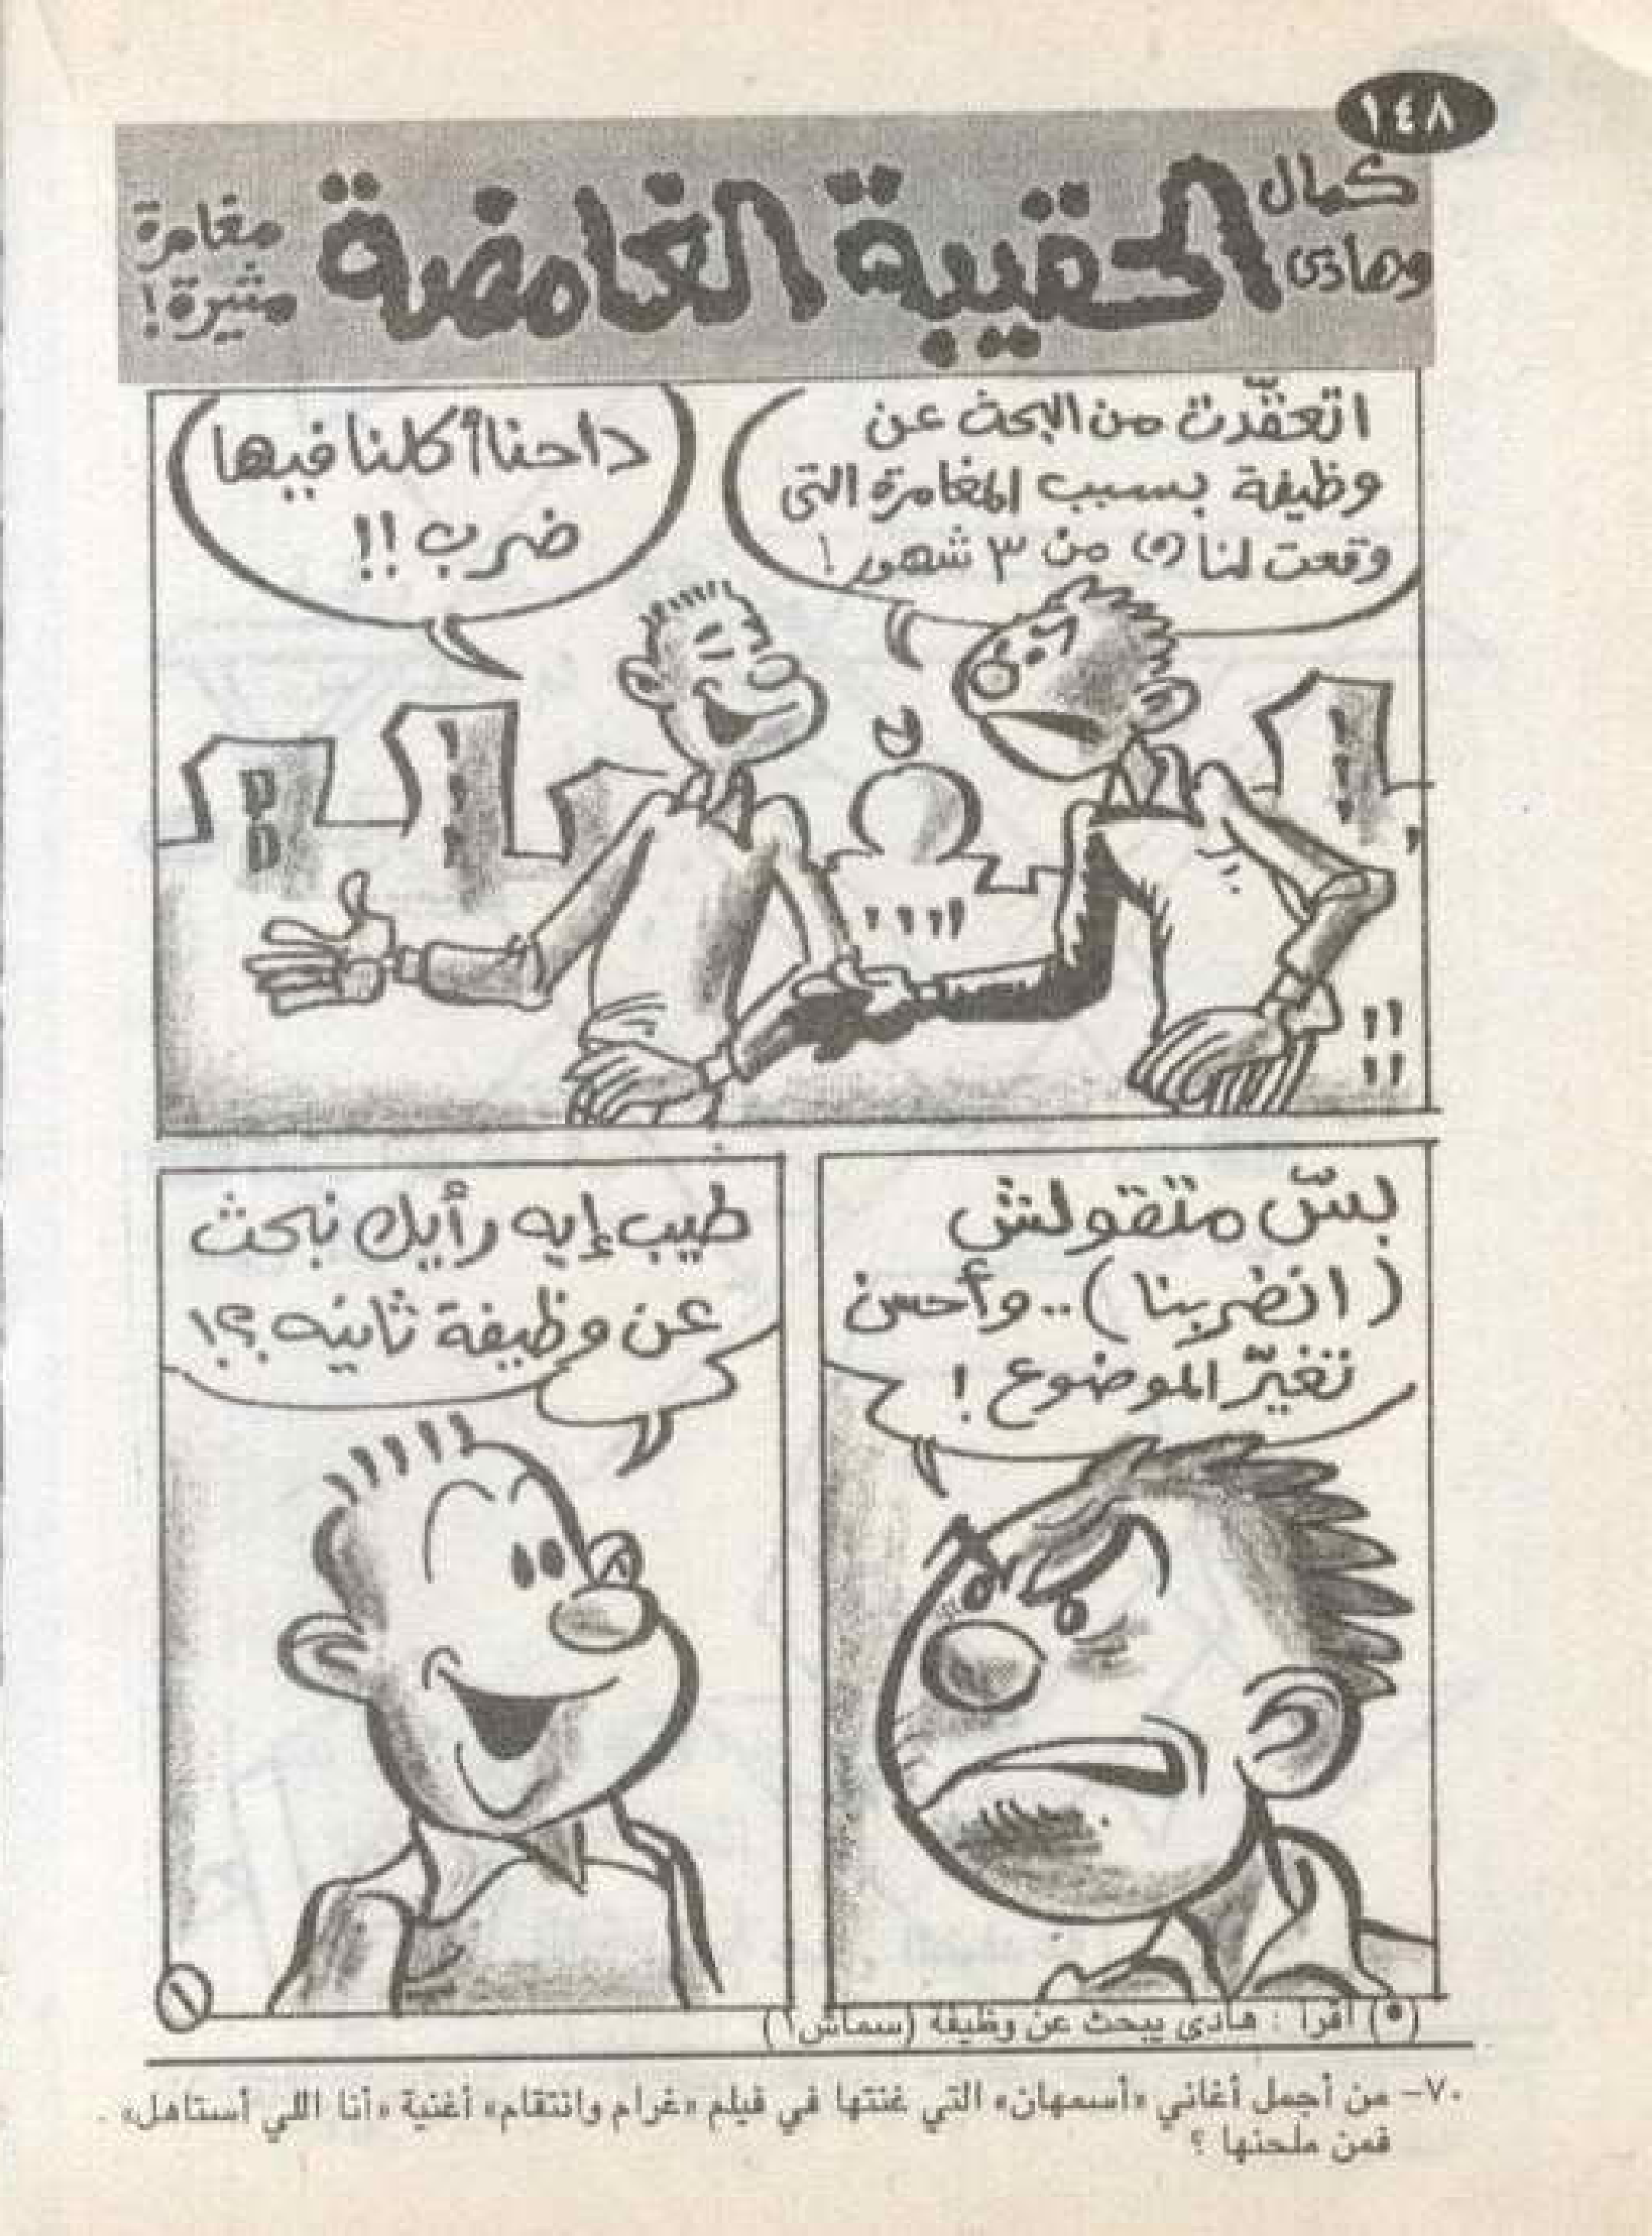 ١٤٨
كمال
وهادى
الحقيبة الغامضة
مغامرة
مثيرة!
اتعقّدت من البحث عن
وظيفة بسبب المغامرة التى
وقعت لنا (*) من ٣ شهور!
داحنا أكلنا فيها
ضرب!!
بسّ متقولش
(انضربنا).. وأحسن
نغيّر الموضوع!
طيب إيه رأيك نبحث
عن وظيفة ثانيه؟!
(*) اقرأ : هادى يبحث عن وظيفة (سماش ١)
١
٧٠- من أجمل أغاني «أسمهان» التي غنتها في فيلم «غرام وانتقام» أغنية «أنا اللي أستاهل».
فمن ملحنها ؟